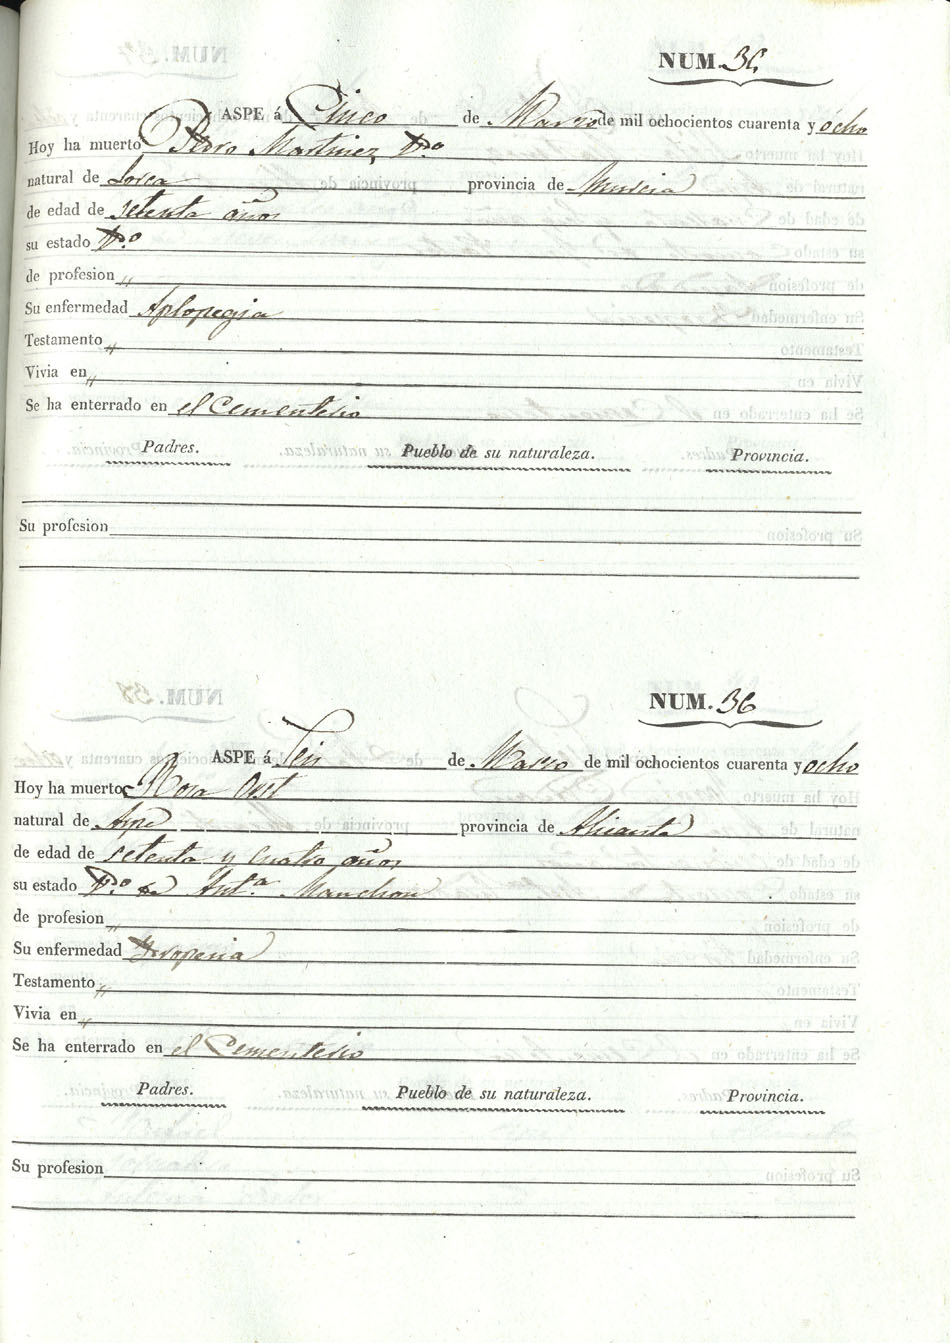 NUM. 35
ASPE á Cinco de Marzo de mil ochocientos cuarenta y ocho
Hoy ha muerto Pedro Martinez Vdo
natural de Lorca provincia de Murcia
de edad de setenta años
su estado Vdo
de profesion „
Su enfermedad Aplopegia
Testamento „
Vivia en „
Se ha enterrado en el Cementerio
Padres. Pueblo de su naturaleza. Provincia.
Su profesion
NUM. 36
ASPE á Seis de Marzo de mil ochocientos cuarenta y ocho
Hoy ha muerto Rosa
natural de Aspe provincia de Alicante
de edad de setenta y cuatro años
su estado Vda de Anta Manchon
de profesion „
Su enfermedad
Testamento „
Vivia en „
Se ha enterrado en el Cementerio
Padres. Pueblo de su naturaleza. Provincia.
Su profesion